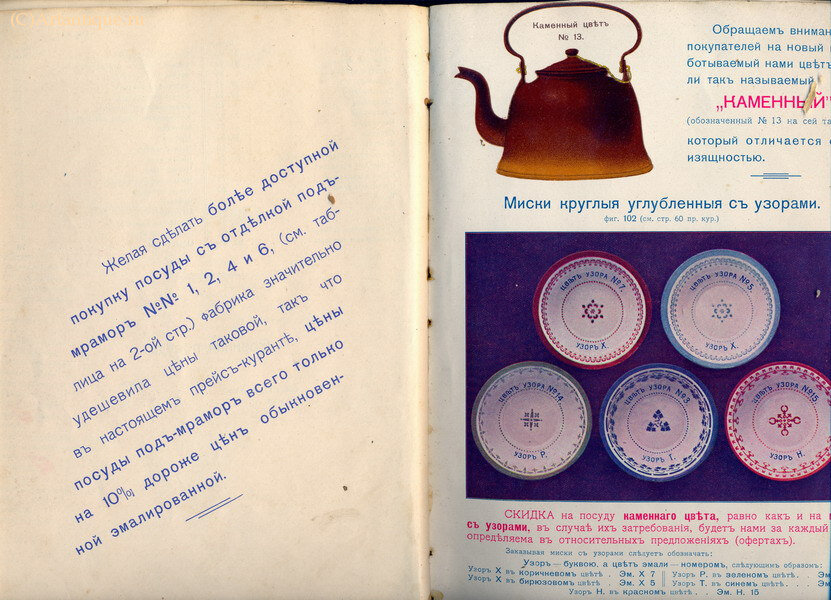 Желая сдѣлать болѣе доступной
покупку посуды съ отдѣлкой подъ-
мраморъ №№ 1, 2, 4 и 6, (см. таб-
лица на 2-ой стр.) фабрика значительно
удешевила цѣны таковой, такъ что
въ настоящемъ прейсъ-курантѣ, цѣны
посуды подъ-мраморъ всего только
на 10% дороже цѣнъ обыкновен-
ной эмалированной.
Каменный цвѣтъ
№ 13.
Обращаемъ вниман
покупателей на новый
ботываемый нами цвѣтъ
ли такъ называемый
„КАМЕННЫЙ"
(обозначенный № 13 на сей та
который отличается
изящностью.
Миски круглыя углубленныя съ узорами.
фиг. 102 (см. стр. 60 пр. кур.)
ЦВѢТЪ УЗОРА №7.
УЗОРЪ X.
ЦВѢТЪ УЗОРА №5.
УЗОРЪ X.
ЦВѢТЪ УЗОРА №14
УЗОРЪ P.
ЦВѢТЪ УЗОРА №3
УЗОРЪ T.
ЦВѢТЪ УЗОРА №15
УЗОРЪ H.
СКИДКА на посуду каменнаго цвѣта, равно какъ и на
съ узорами, въ случаѣ ихъ затребованія, будетъ нами за каждый
опредѣляема въ относительныхъ предложеніяхъ (офертахъ).
Заказывая миски съ узорами слѣдуетъ обозначать:
Узоръ — буквою, а цвѣтъ эмали — номеромъ, слѣдующимъ образомъ:
Узоръ X въ коричневомъ цвѣтѣ . Эм. X 7 Узоръ P. въ зеленомъ цвѣтѣ. . Эм.
Узоръ X въ бирюзовомъ цвѣтѣ . Эм. X 5 Узоръ T. въ синемъ цвѣтѣ. . Эм.
Узоръ H. въ красномъ цвѣтѣ. . Эм. H. 15